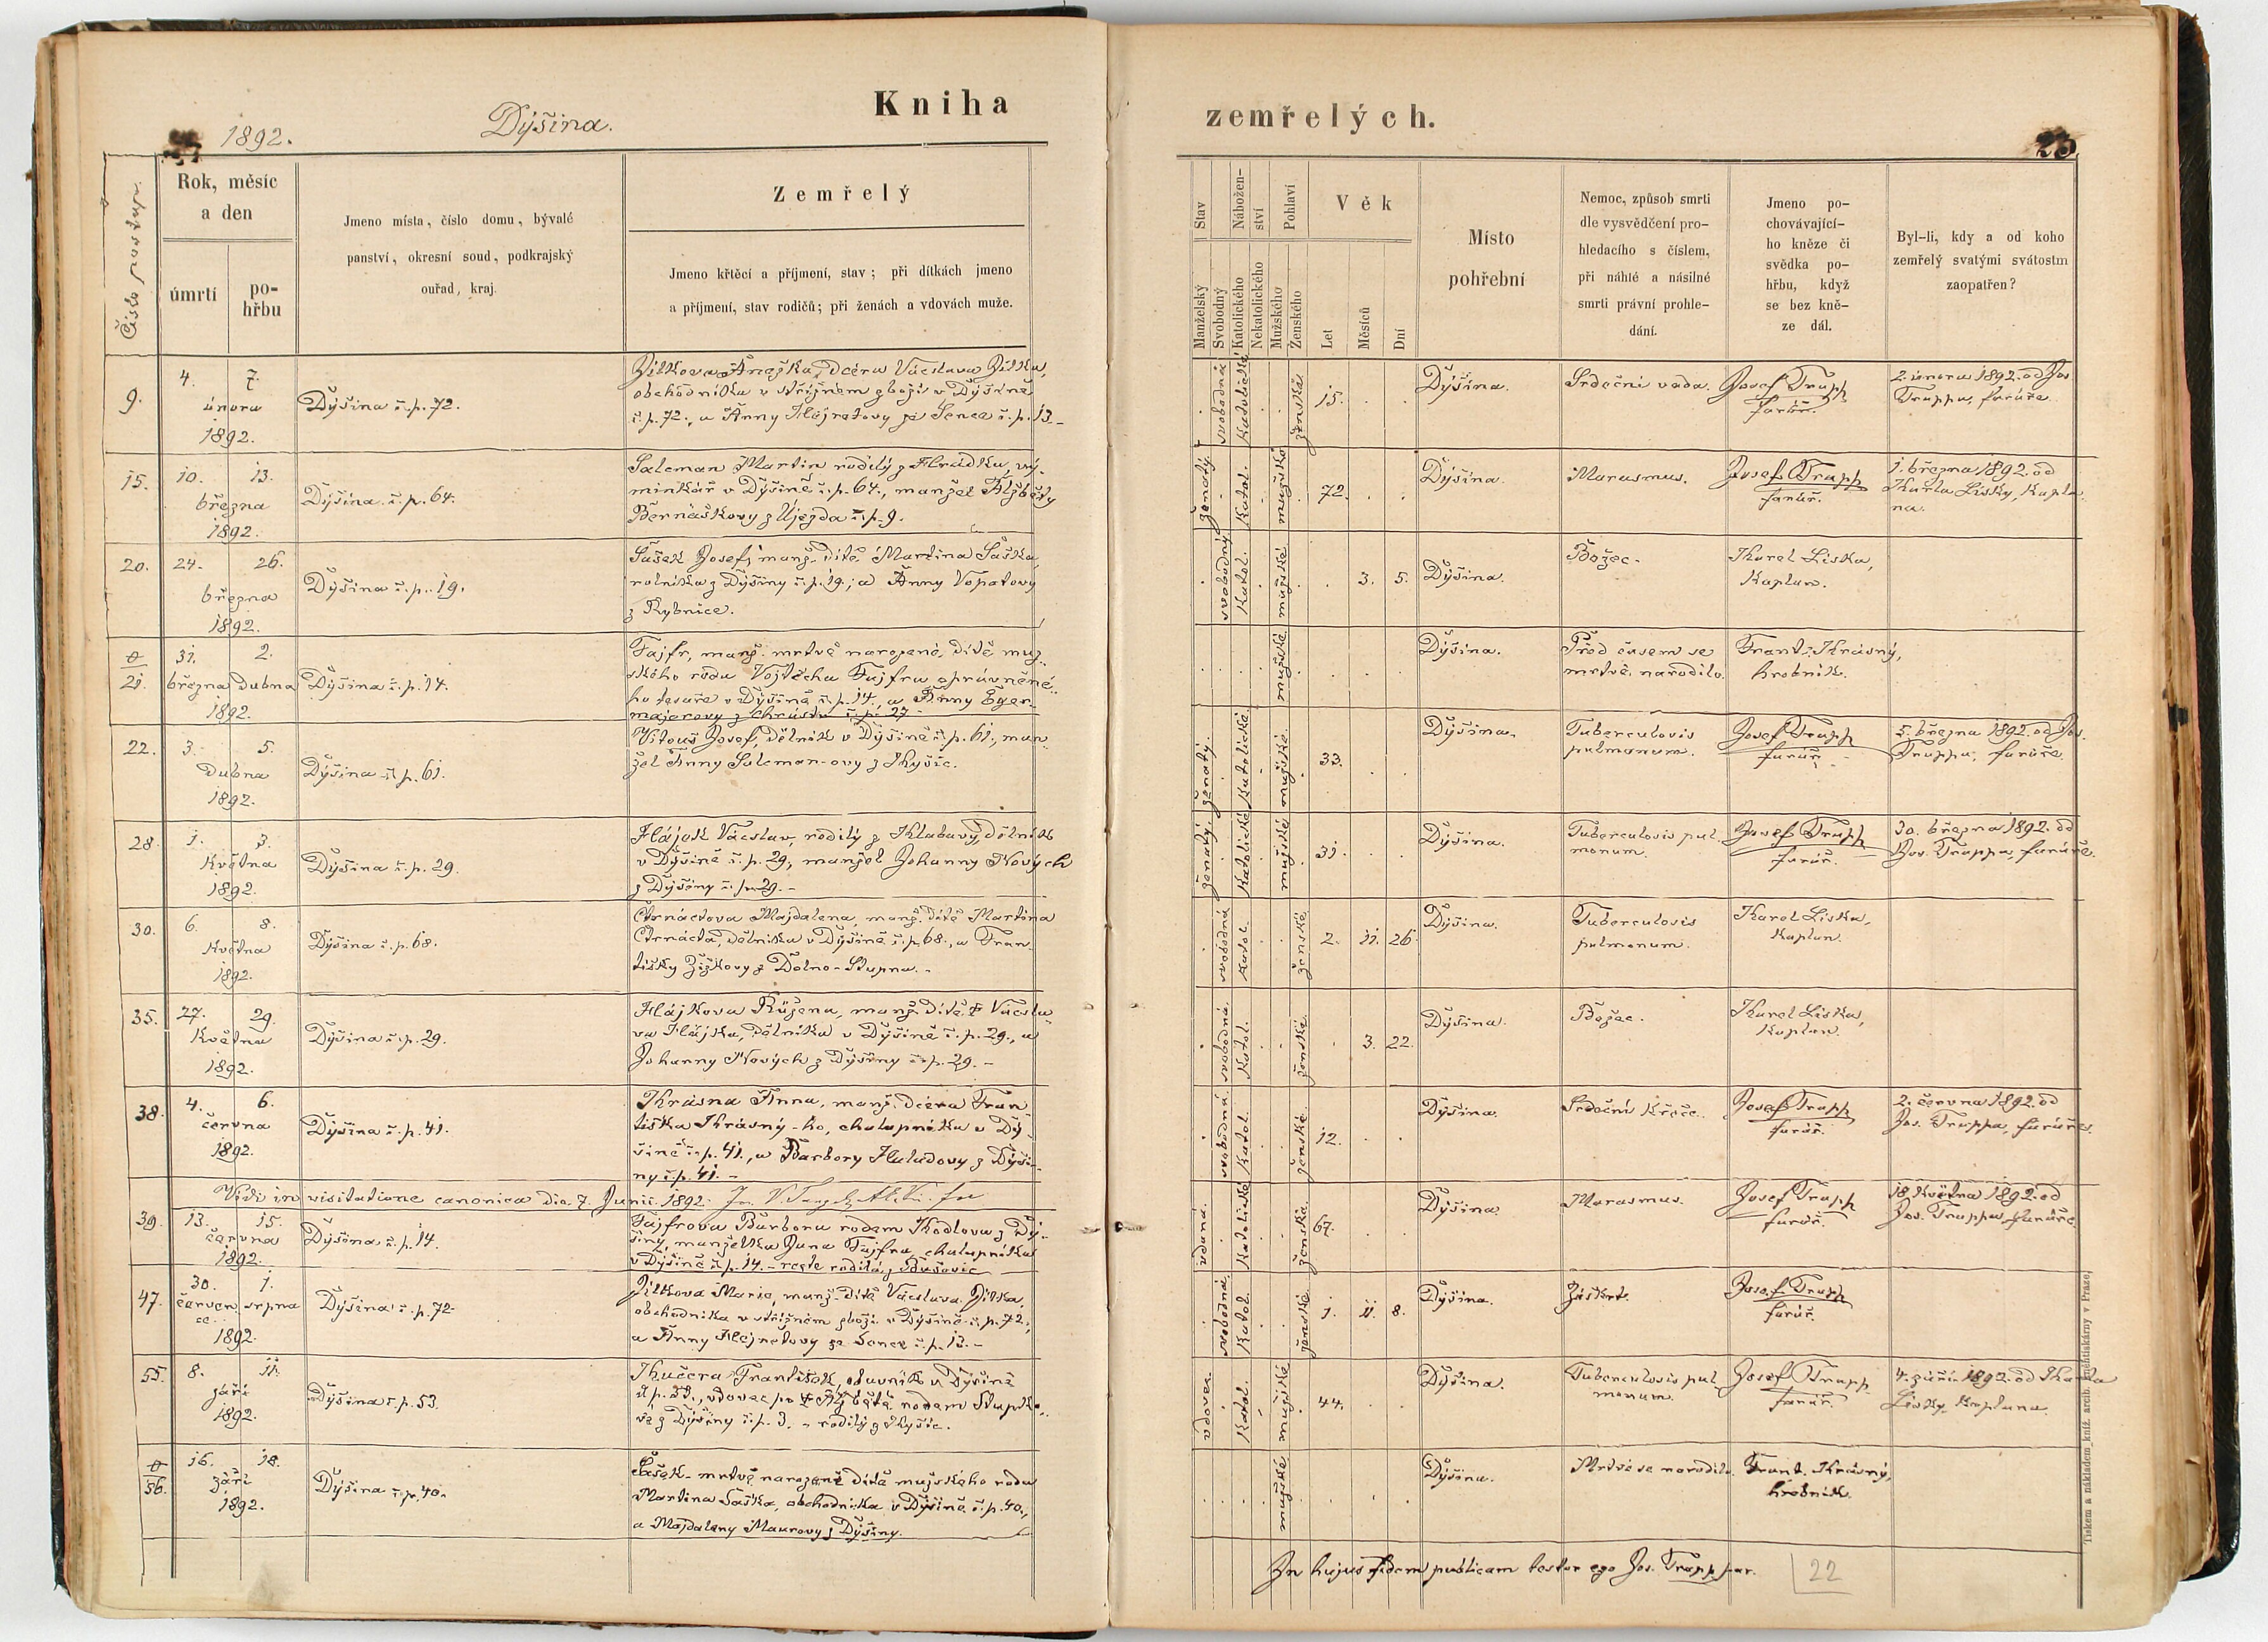 Kniha
zemřelých.
1892.
Dýšina.
Číslo postup.
Rok, měsíc
a den
úmrtí
po-
hřbu
Jmeno místa, číslo domu, bývalé
panství, okresní soud, podkrajský
ouřad, kraj.
Zemřelý
Jmeno křtěcí a příjmení, stav; při dítkách jmeno
a příjmení, stav rodičů; při ženách a vdovách muže.
Stav
Manželský
Svobodný
Nábožen-
ství
Katolického
Nekatolického
Pohlaví
Mužského
Ženského
Věk
Let
Měsíců
Dní
Místo
pohřební
Nemoc, způsob smrti
dle vysvědčení pro-
hledacího s číslem,
při náhlé a násilné
smrti právní prohle-
dání.
Jmeno po-
chovávající-
ho kněze či
svědka po-
hřbu, když
se bez kně-
ze dál.
Byl-li, kdy a od koho
zemřelý svatými svátostm
zaopatřen?
9.
4. 7.
února
1892.
Dýšina č. p. 72.
Jílkova Anežka, dcera Václava Jílka,
obchodníka v střižném zboží v Dýšině
č. p. 72., a Anny Hájratovy ze Sence č. p. 13.-
svobodná
Katolické
ženská
15.
Dýšina.
Srdeční vada.
Josef Trapp
farář.
2. února 1892. od Jos.
Trappa, faráře.
15.
10. 13.
března
1892.
Dýšina č. p. 64.
Saleman Martin rodilý z Hrádku, vý-
minkář v Dýšině č. p. 64., manžel Alžběty
Bernáškovy z Újezda č. p. 9.
ženatý.
Katol.
mužské
72.
Dýšina.
Marasmus.
Josef Trapp
farář.
1. března 1892. od
Karla Lisky, kapla-
na.
20.
24. 26.
března
1892.
Dýšina č. p. 19.
Šašek Josef, manž. dítě Martina Šaška,
rolníka z Dýšiny č. p. 19.; a Anny Vopatovy
z Rybnice.
svobodný
Katol.
mužské
3. 5.
Dýšina.
Božec.
Karel Liska,
kaplan.
21.
31. 2.
března dubna
1892.
Dýšina č. p. 14.
Fajfr, manž. mrtvě narozené, dítě muž-
ského rodu Vojtěcha Fajfra oprávněné-
ho tesaře v Dýšině č. p. 14., a Anny Eger-
majerovy z Chrástu č. p. 27
mužské
Dýšina.
Před časem se
mrtvě narodilo.
Frant. Krásný,
hrobník.
22.
3. 5.
dubna
1892.
Dýšina č. p. 61.
Vitouš Josef, dělník v Dýšině č. p. 61., man-
žel Anny Saleman-ovy z Kyšic.
ženatý.
Katolické
mužské
33.
Dýšina.
Tuberculosis
pulmonum.
Josef Trapp
farář.
5. března 1892. od Jos.
Trappa, faráře.
28.
1. 3.
Května
1892.
Dýšina č. p. 29.
Hájek Václav, rodilý z Klabavy, dělník
v Dýšině č. p. 29., manžel Johanny Nových
z Dýšiny č. p. 29. -
ženatý.
Katolické
mužské
31.
Dýšina.
Tuberculosis pul-
monum.
Josef Trapp
farář.
30. března 1892. od
Jos. Trappa, faráře.
30.
6. 8.
Května
1892.
Dýšina č. p. 68.
Čtrnáctova Majdalena, manž. dítě Martina
Čtrnácta, dělníka v Dýšině č. p. 68., a Fran-
tišky Žižkovy z Dolno-Stupna. -
svobodná
Katol.
ženské
2. 11. 26.
Dýšina.
Tuberculosis
pulmonum.
Karel Liska,
kaplan.
35.
27. 29.
Května
1892.
Dýšina č. p. 29.
Hájkova Růžena, manž. dítě † Václa-
va Hájka, dělníka v Dýšině č. p. 29., a
Johanny Nových z Dýšiny č. p. 29. -
svobodná.
Katol.
ženské.
3. 22.
Dýšina.
Božec.
Karel Liska,
kaplan.
38.
4. 6.
června
1892.
Dýšina č. p. 41.
Krásna Anna, manž. dcera Fran-
tiška Krásný-ho, chalupníka v Dý-
šině č. p. 41., a Barbory Haludovy z Dýši-
ny č. p. 41. -
svobodná.
Katol.
ženské.
12.
Dýšina.
Srdeční křeče.
Josef Trapp
farář.
2. června 1892. od
Jos. Trappa, faráře.
Vidi in visitatione canonica die 7. Junii 1892.
39.
13. 15.
června
1892.
Dýšina č. p. 14.
Fajfrova Barbora rodem Kodlova z Dý-
šiny, manželka Jana Fajfra, chalupníka
v Dýšině č. p. 14. - recte rodilá z Bušovic
vdaná.
Katolické
ženská.
67.
Dýšina.
Marasmus.
Josef Trapp
farář.
18. Května 1892. od
Jos. Trappa, faráře.
47.
30. 1.
červen- srpna
ce
1892.
Dýšina č. p. 72.
Jílkova Marie, manž. dítě Václava Jílka,
obchodníka v střižném zboží v Dýšině č. p. 72.,
a Anny Hejratovy ze Sence č. p. 13. -
svobodná.
Katol.
ženské
1. 11. 8.
Dýšina.
Záškrt.
Josef Trapp
farář.
55.
8. 11.
září
1892.
Dýšina č. p. 53.
Kučera František, obuvník v Dýšině
č. p. 53., vdovec po † Alžbětě rodem Stupko-
vé z Dýšiny č. p. 3. - rodilý z Kyšic.
vdovec.
Katol.
mužské
44.
Dýšina.
Tuberculosis pul-
monum.
Josef Trapp
farář.
4. září 1892. od Karla
Lisky, kaplana.
56.
16. 18.
září
1892.
Dýšina č. p. 40.
Šašek - mrtvě narozené dítě mužského rodu
Martina Šaška, obchodníka v Dýšině č. p. 40.,
a Majdaleny Maurovy z Dýšiny.
mužské
Dýšina.
Mrtvé se narodilo.
Frant. Krásný,
hrobník.
In hujus fidem publicam testor ego Jos. Trapp par.
22
Tiskem a nákladem kníž. arcib. knihtiskárny v Praze.